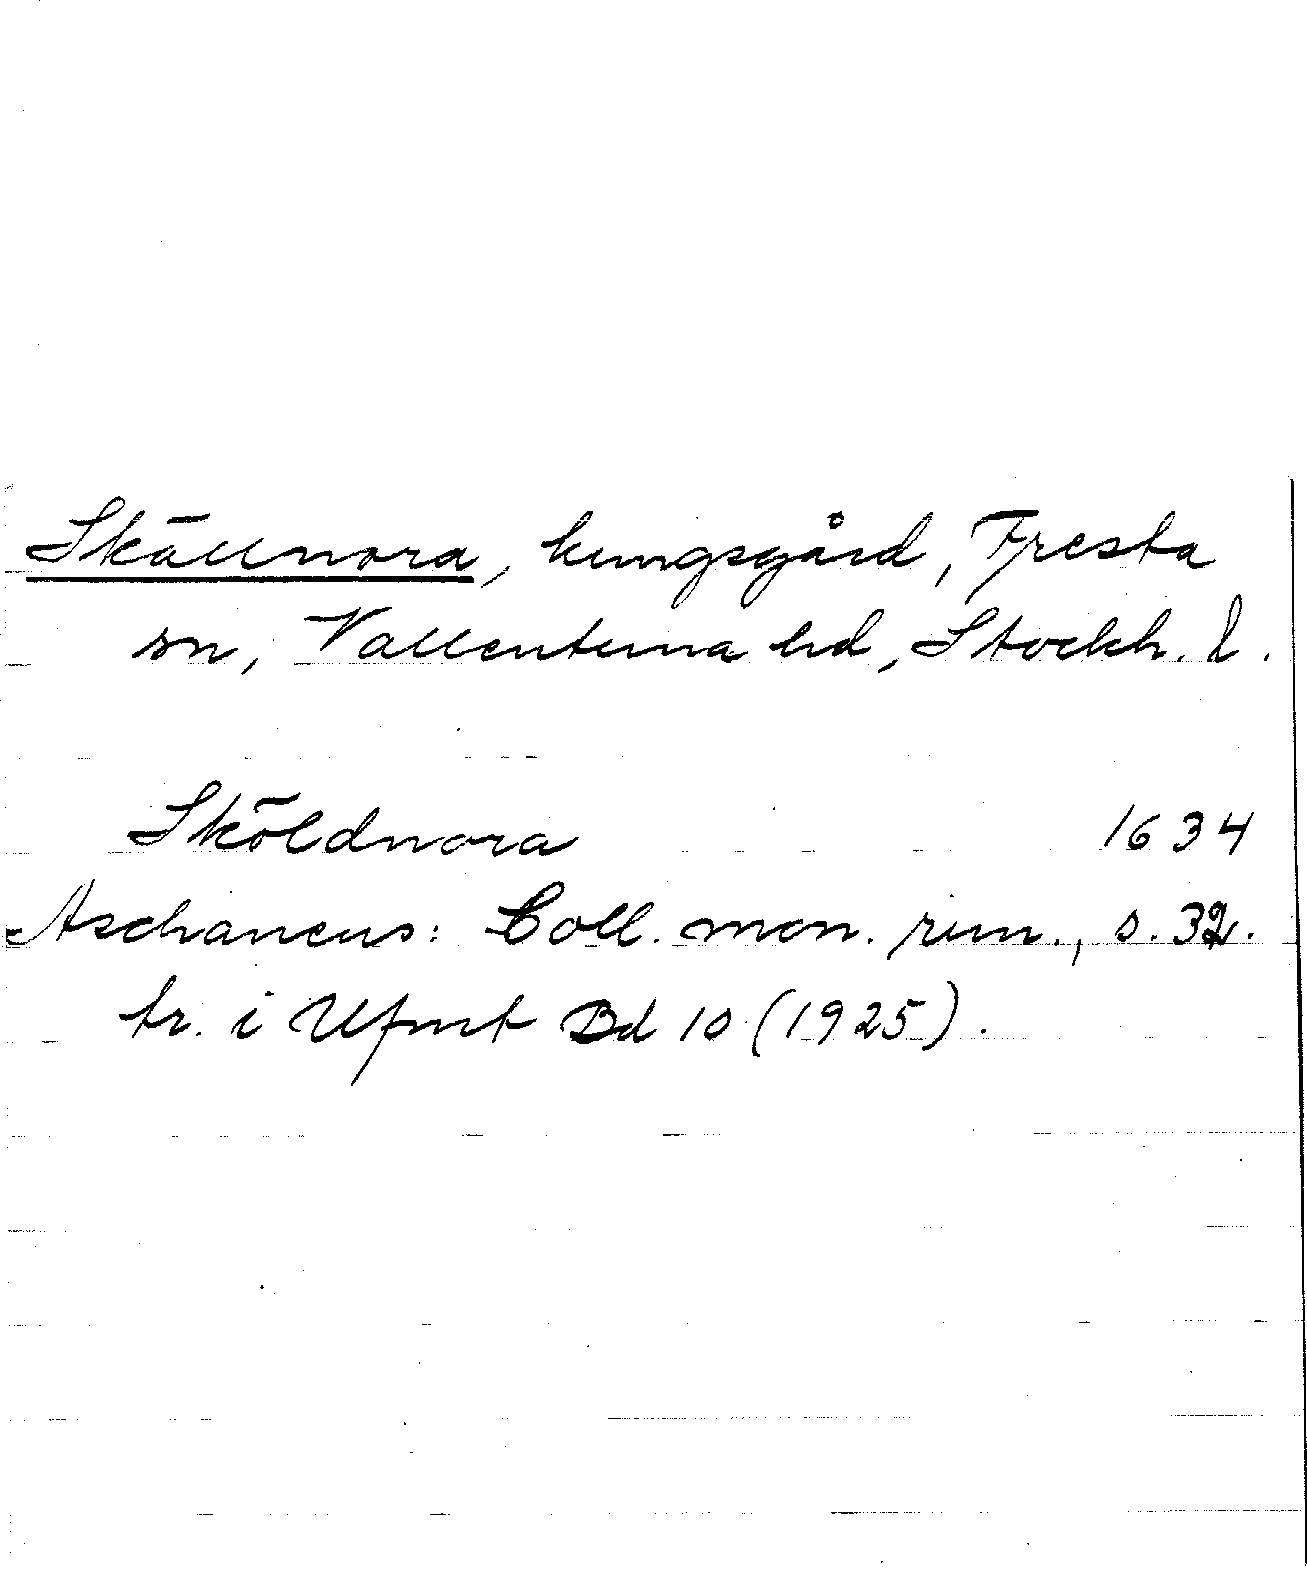 Skällnora, kungsgård, Fresta
sn, Vallentuna hd, Stockh. l.
Sköldnora 1634
Aschaneus: Coll. mon. run., s. 32.
tr. i Ufmt Bd 10 (1925).